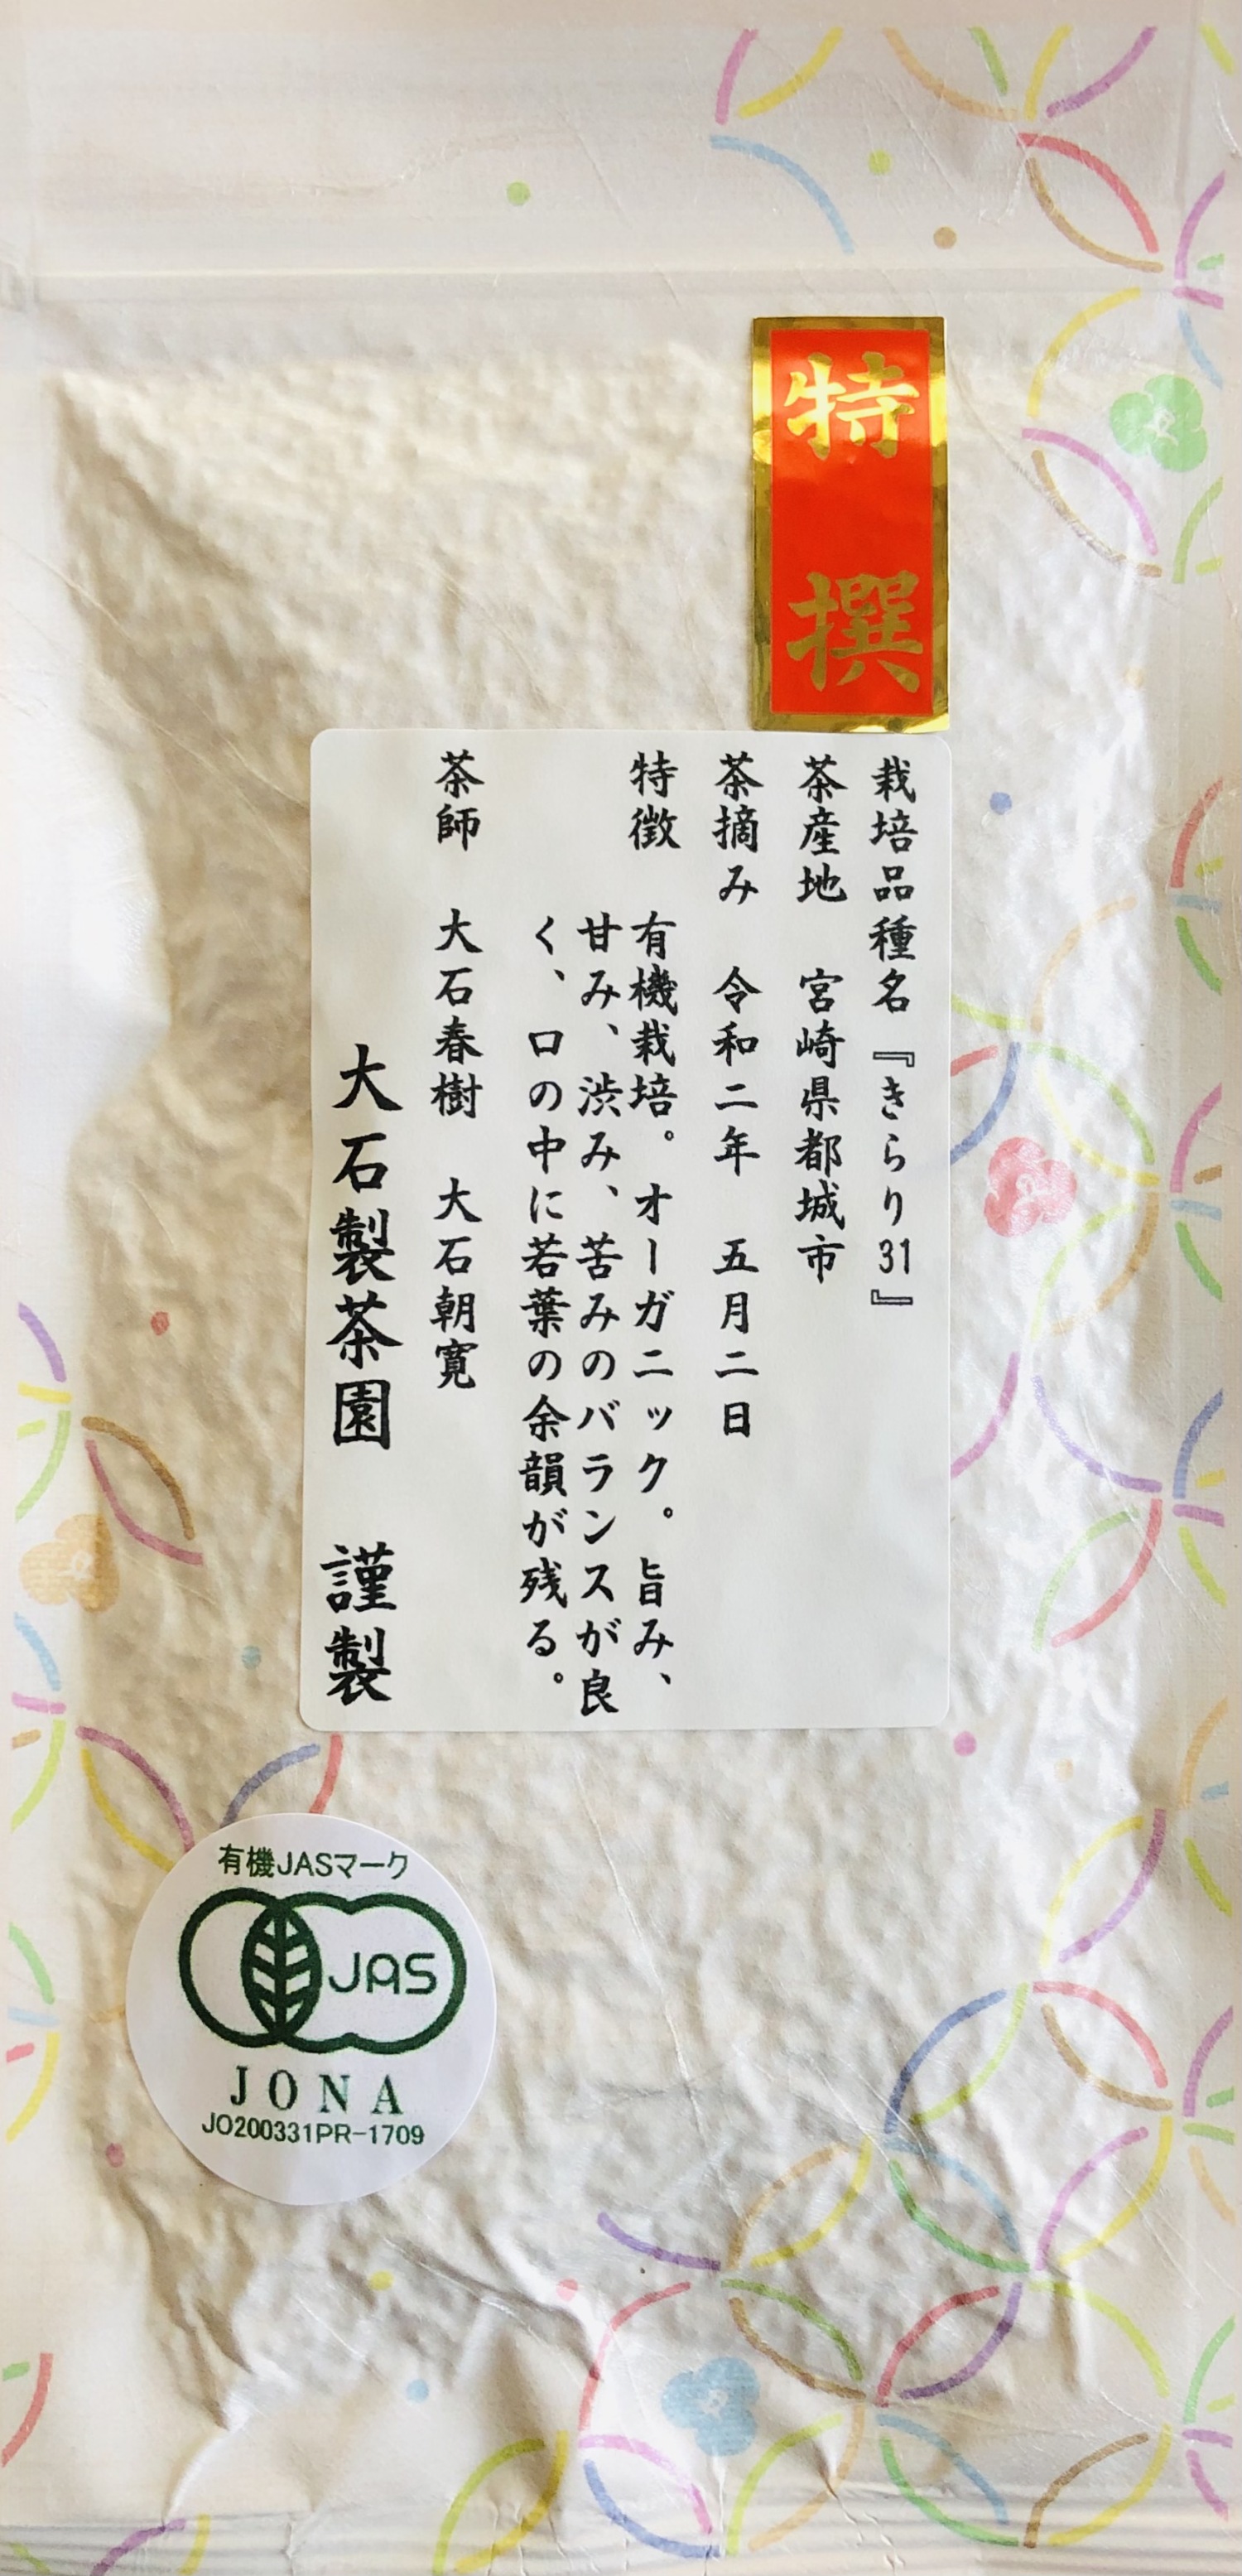 特撰
栽培品種名『きらり31』
茶産地 宮崎県都城市
茶摘み 令和二年 五月二日
特徴 有機栽培。オーガニック。旨み、
甘み、渋み、苦みのバランスが良
く、口の中に若葉の余韻が残る。
茶師 大石春樹 大石朝寛
大石製茶園 謹製
有機JASマーク
JAS
JONA
JO200331PR-1709